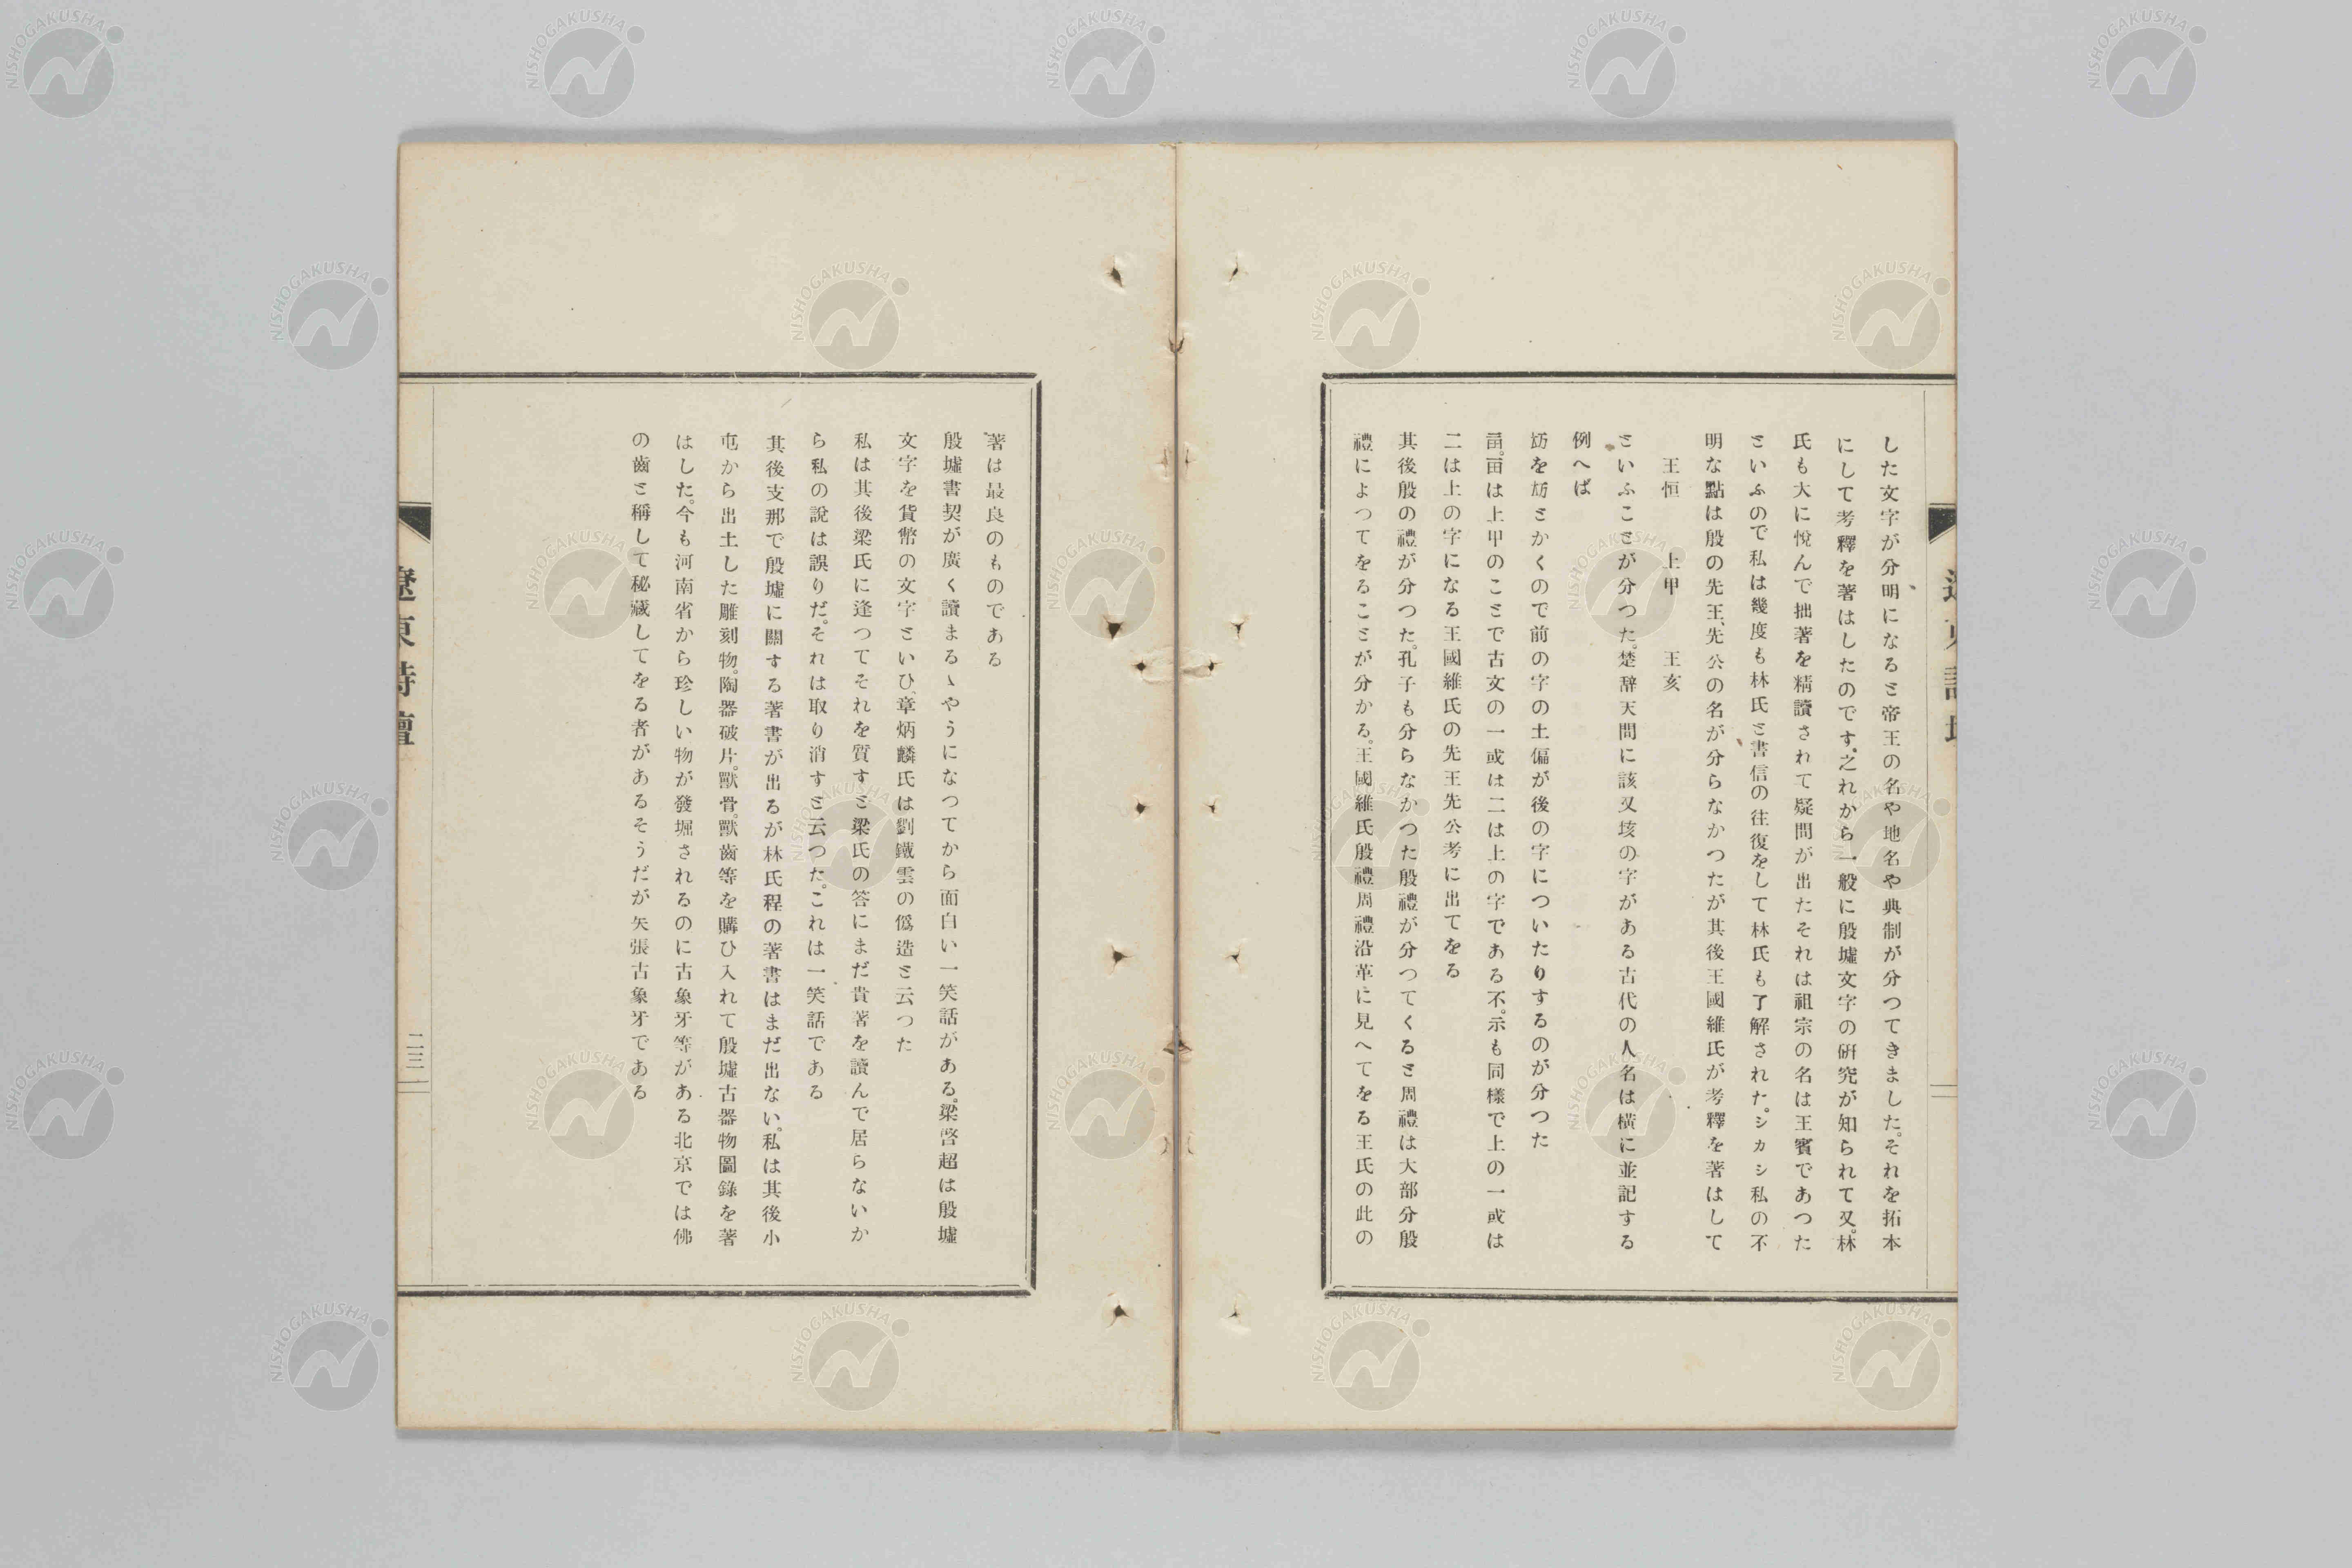 した文字が分明になると帝王の名や地名や典制が分つてきました。それを拓本
にして考釋を著はしたのです、之れから一般に殷墟文字の硏究が知られて又。林
氏も大に悅んで拙著を精讀されて疑問が出たそれは祖宗の名は王賓であつた
といふので私は幾度も林氏と書信の往復をして林氏も了解された。シカシ私の不
明な點は殷の先王、先公の名が分らなかつたが其後王國維氏が考釋を著はして
王恒　上甲　王亥
といふことが分つた。楚辞天問に該又垓の字がある古代の人名は橫に並記する
例へば
をとかくので前の字の土偏が後の字についたりするのが分つた
は上甲のことで古文の一或は二は上の字である不。示も同樣で上の一或は
二は上の字になる王國維氏の先王先公考に出てをる
其後殷の禮が分つた。孔子も分らなかつた殷禮が分つてくると周禮は大部分殷
禮によつてをることが分かる。王國維氏殷禮周禮沿革に見へてをる王氏の此の
著は最良のものである
殷墟書契が廣く讀まるゝやうになつてから面白い一笑話がある。梁啓超は殷墟
文字を貨幣の文字といひ、章炳麟氏は劉鐵雲の僞造と云つた
私は其後梁氏に逢つてそれを質すと梁氏の答にまだ貴著を讀んで居らないか
ら私の說は誤りだ。それは取り消すと云つた。これは一笑話である
其後支那で殷墟に關する著書が出るが林氏程の著書はまだ出ない。私は其後小
屯から出土した雕刻物。陶器破片。獸骨。獸齒等を購ひ入れて殷墟古器物圖錄を著
はした。今も河南省から珍しい物が發堀されるのに古象牙等がある北京では佛
の齒と稱して秘藏してをる者があるそうだが矢張古象牙である
遼東詩壇
二三
NISHOGAKUSHA